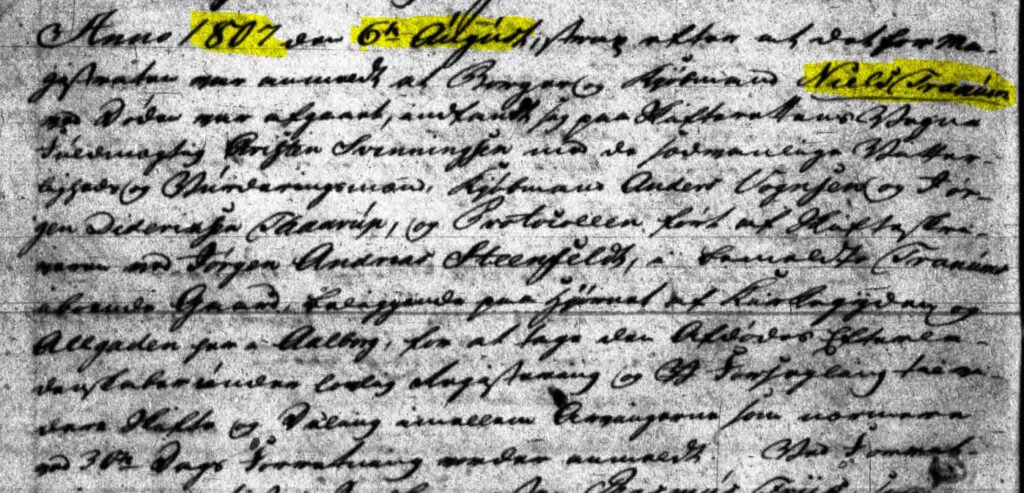 Anno 1807 den 6te August, strax efter at det for Ma-
gistraten var anmeldt at Borger og Kjøbmand Niels Tranum
ved Døden var afgaaet, indfandt sig paa Skifterettens Vegne
Fuldmægtig Kristen Svenningsen med de sædvanlige Vitter-
ligheds og Vurderingsmænd, Kjøbmænd Anders Vognsen og Jør-
gen Diderichsen Thaarup, og Protocollen ført af Skifteskri-
veren ved Jørgen Andreas Steenfeldt, i bemeldte Tranums
iboende Gaard, beliggende paa Hjørnet af Kirkegyden og
Algaden her i Aalborg, for at tage den Afdødes Efterla-
denskaber under lovlig Registering og Forsegling til vi-
dere Skifte og Deling imellem Arvingerne som nærmere
ved 30te Dags Forretning vorder anmeldt Ved Formet-